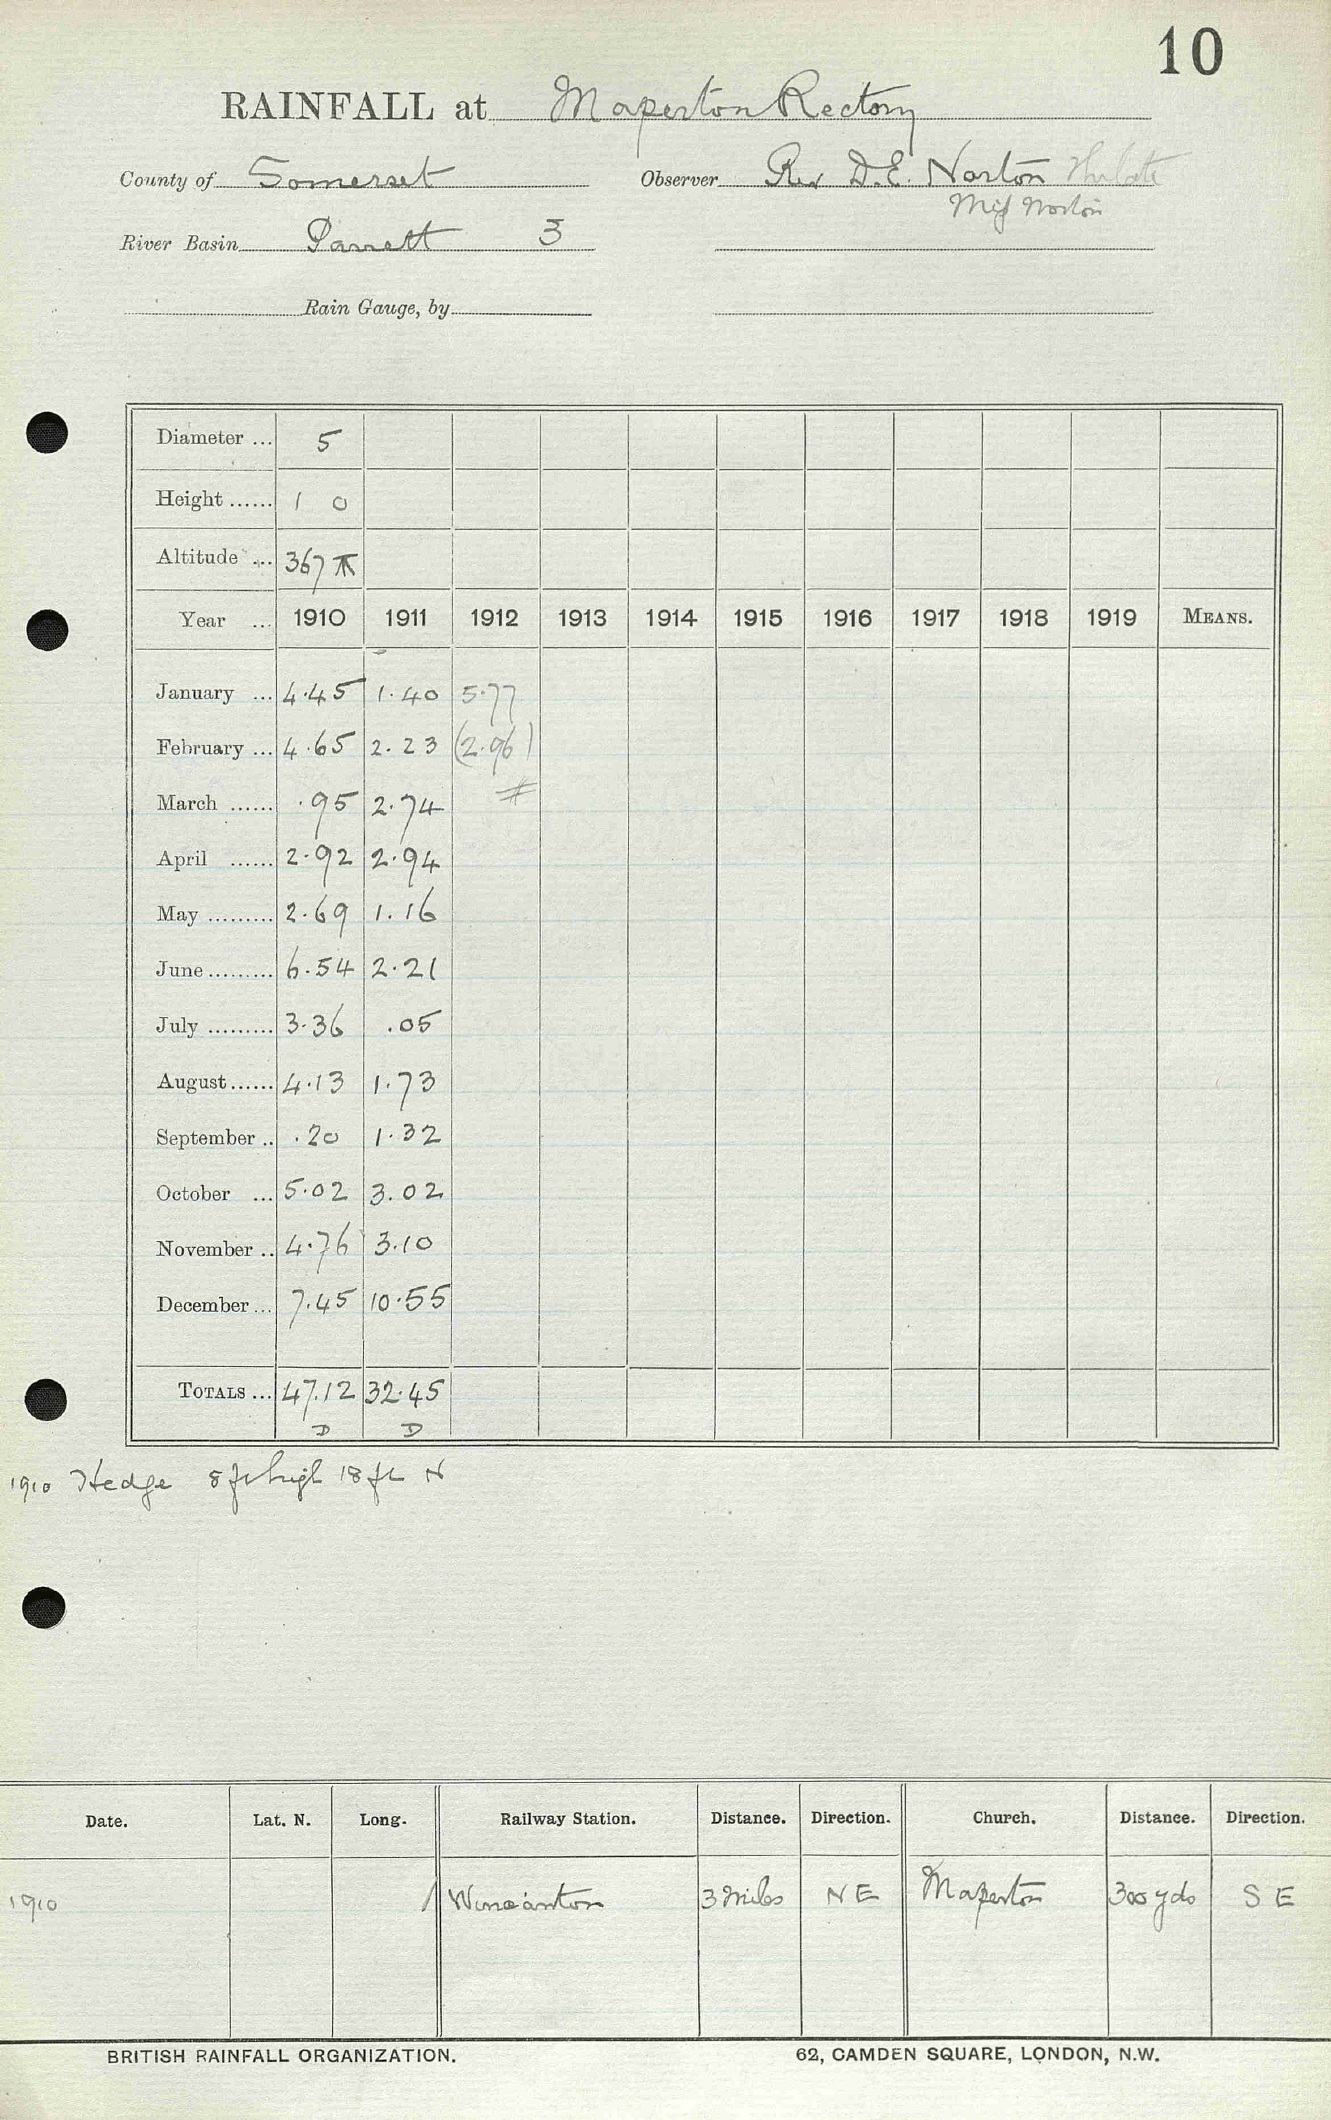 10
RAINFALL at Maperton Rectory
County of Somerset Observer Rev D.E. Norton
Miss Norton
River Basin Parrett 3
Rain Gauge, by
Diameter ... 5
Height ...... 1 0
Altitude ... 367
Year ... 1910 1911 1912 1913 1914 1915 1916 1917 1918 1919 MEANS.
January ... 4.45 1.40 5.77
February ... 4.65 2.23 (2.96)
March ...... .95 2.74 #
April ...... 2.92 2.94
May ......... 2.69 1.16
June ......... 6.54 2.21
July ......... 3.36 .05
August ...... 4.13 1.73
September .. .20 1.32
October ... 5.02 3.02
November .. 4.76 3.10
December ... 7.45 10.55
TOTALS ... 47.12 32.45
D D
1910 Hedge 8 ft high 18 ft N
Date. Lat. N. Long. Railway Station. Distance. Direction. Church. Distance. Direction.
1910 Wincanton 3 miles NE Maperton 300 yds S E
BRITISH RAINFALL ORGANIZATION. 62, CAMDEN SQUARE, LONDON, N.W.